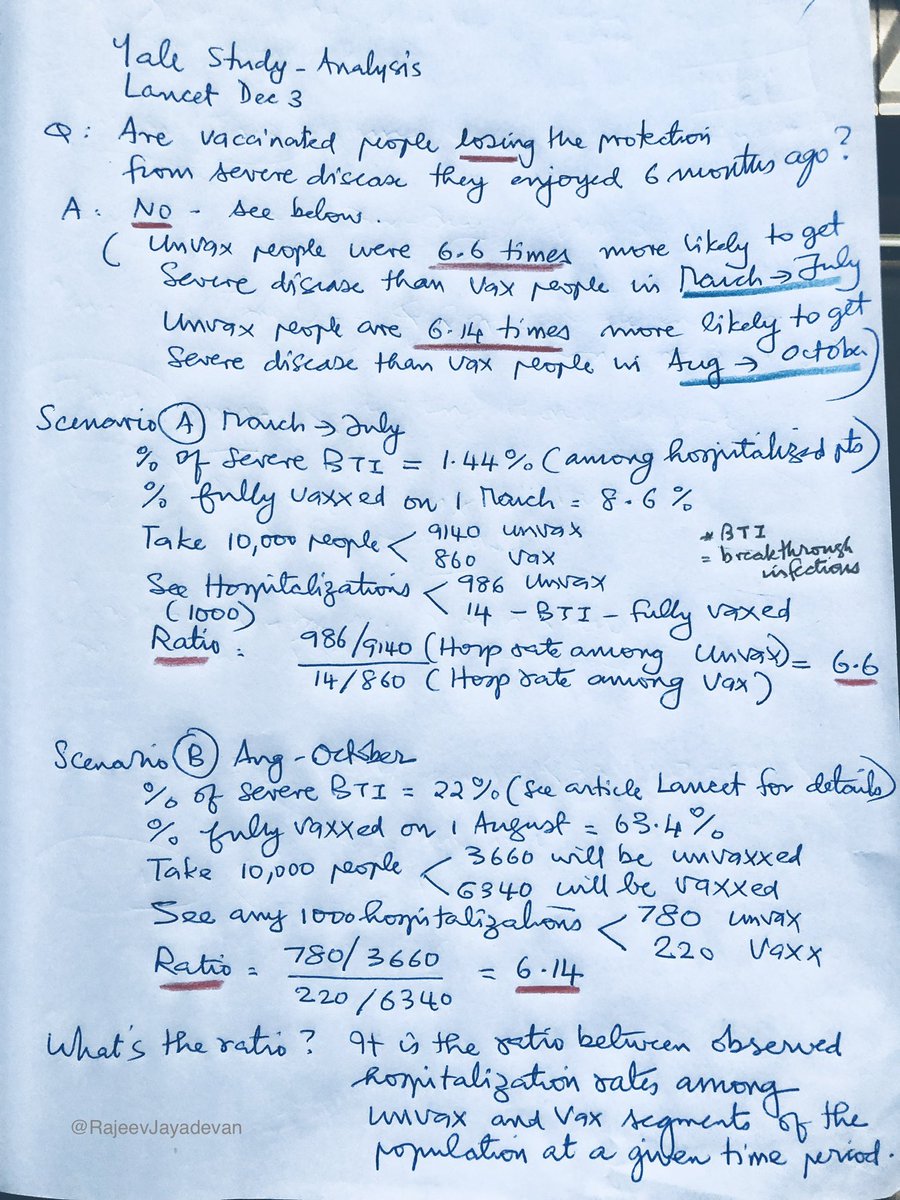 Yale Study - Analysis
Lancet Dec 3
Q: Are vaccinated people losing the protection
from severe disease they enjoyed 6 months ago?
A: NO - see below.
( Unvax people were 6.6 times more likely to get
Severe disease than Vax people in March → July
Unvax people are 6.14 times more likely to get
Severe disease than vax people in Aug → October)
Scenario A March → July
% of severe BTI = 1.44% (among hospitalized pts)
% fully vaxxed on 1 March = 8.6 %
Take 10,000 people < 9140 unvax
860 vax
* BTI
= breakthrough
infections
See Hospitalizations < 986 unvax
(1000) 14 - BTI - fully vaxed
Ratio = 986/9140 (Hosp rate among Unvax) = 6.6
14/860 (Hosp rate among Vax)
Scenario B Aug - October
% of severe BTI = 22% (see article Lancet for details)
% fully vaxxed on 1 August = 63.4%
Take 10,000 people < 3660 will be unvaxxed
6340 will be vaxxed
See any 1000 hospitalizations < 780 unvax
220 Vaxx
Ratio = 780/3660 = 6.14
220/6340
What's the ratio? It is the ratio between observed
hospitalization rates among
unvax and vax segments of the
population at a given time period.
@RajeevJayadevan